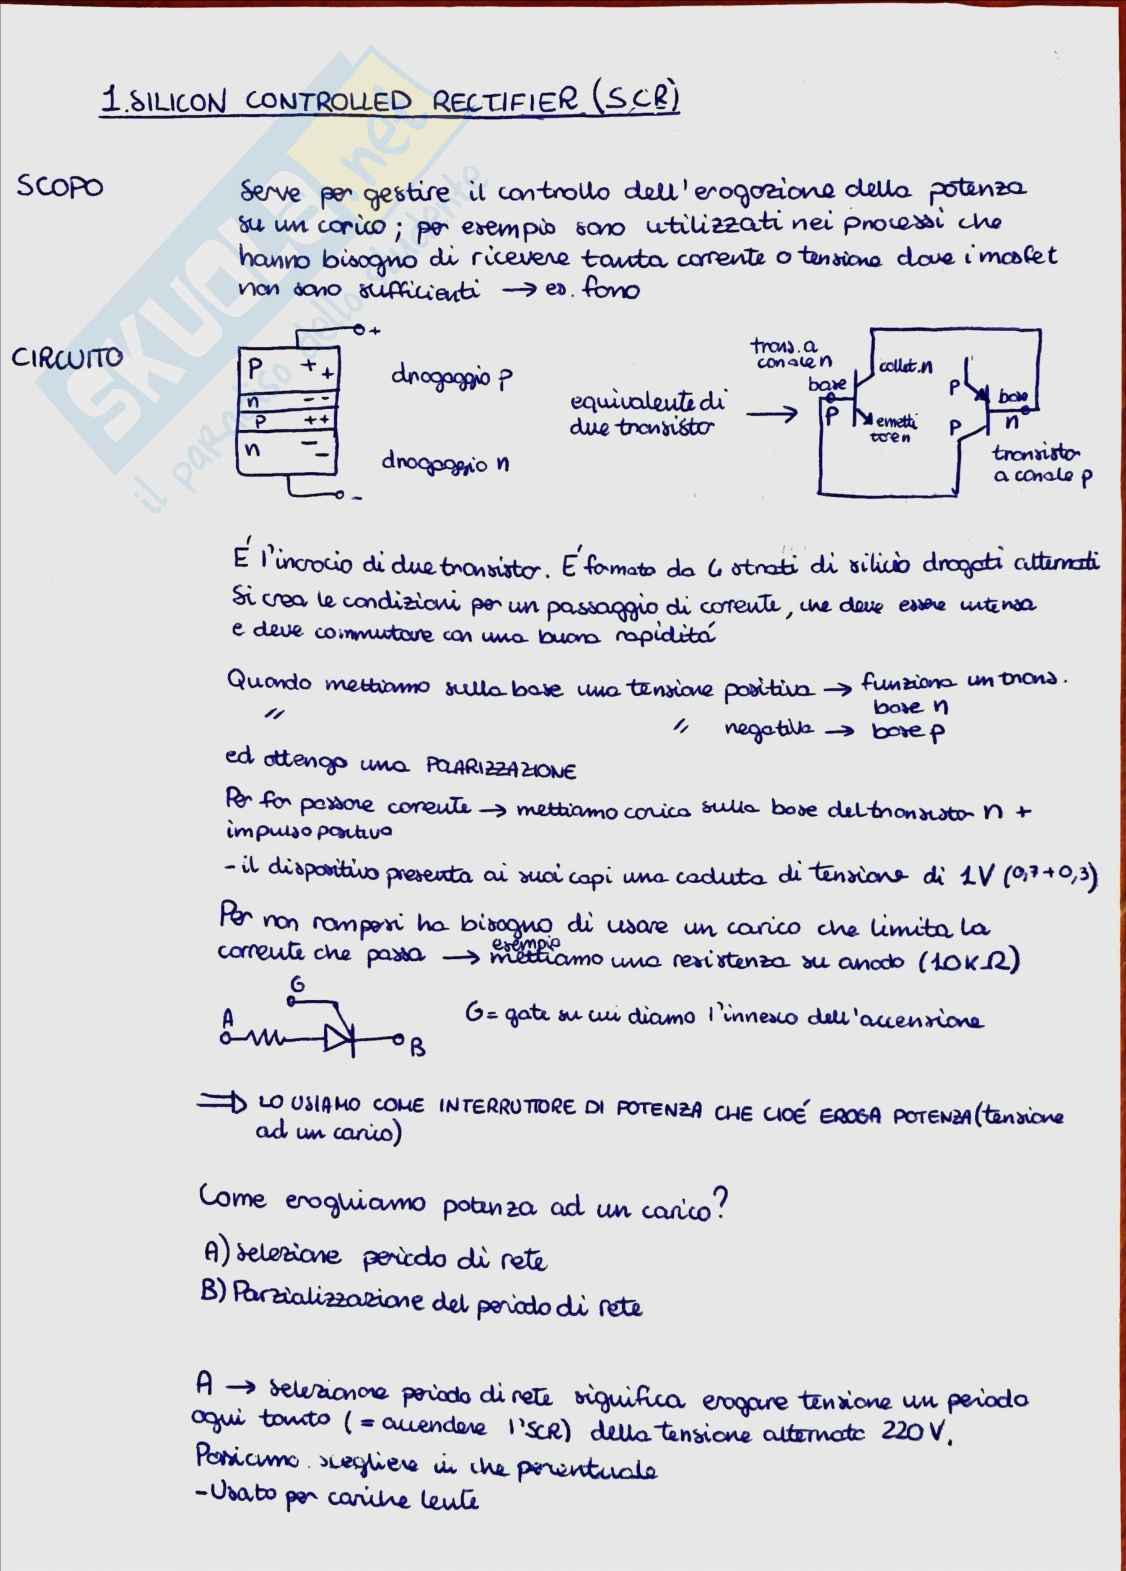 1. SILICON CONTROLLED RECTIFIER (S.C.R)
SCOPO
Serve per gestire il controllo dell'erogazione della potenza
su un carico; per esempio sono utilizzati nei processi che
hanno bisogno di ricevere tanta corrente o tensione dove i mosfet
non sono sufficienti → es. forno
CIRCUITO
+
P ++
n --
P ++
n --
-
drogaggio p
drogaggio n
equivalente di
due transistor
→
trans. a
canale n
base
P
collet. n
emetti
tore n
P
P
base
n
transistor
a canale p
É l'incrocio di due transistor. É formato da 4 strati di silicio drogati alternati
Si crea le condizioni per un passaggio di corrente, che deve essere intensa
e deve commutare con una buona rapiditá
Quando mettiamo sulla base una tensione positiva → funziona un trans.
base n
" " negativa → base p
ed ottengo una POLARIZZAZIONE
Per far passare corrente → mettiamo carica sulla base del transistor n +
impulso positivo
- il dispositivo presenta ai suoi capi una caduta di tensione di 1V (0,7+0,3)
Per non rompersi ha bisogno di usare un carico che limita la
corrente che passa → esempio mettiamo una resistenza su anodo (10KΩ)
G
A
B
G = gate su cui diamo l'innesco dell'accensione
⇒ LO USIAMO COME INTERRUTTORE DI POTENZA CHE CIOÉ EROGA POTENZA (tensione
ad un carico)
Come eroghiamo potenza ad un carico?
A) Selezione periodo di rete
B) Parzializzazione del periodo di rete
A → selezionare periodo di rete significa erogare tensione un periodo
ogni tanto (= accendere l'SCR) della tensione alternata 220 V.
Possiamo scegliere in che percentuale
- Usato per cariche lente
SKUOLA.net
il paradiso dello studente